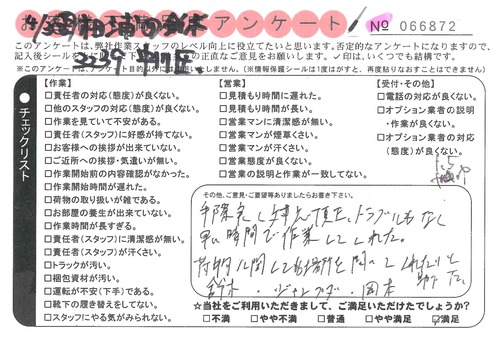 アンケート
№ 066872
このアンケートは、弊社作業スタッフのレベル向上に役立てたいと思います。否定的なアンケートになりますので、
記入後シール
の正直なご意見をお願いします。✓印は、いくつでも結構です。
※このアンケートは、
しません。(※情報保護シールは1度はがすと、再度貼りなおすことはできません)
チェックリスト
【作業】
□責任者の対応(態度)が良くない。
□他のスタッフの対応(態度)が良くない。
□作業を見ていて不安がある。
□責任者(スタッフ)に好感が持てない。
□お客様への挨拶が出来ていない。
□ご近所への挨拶・気遣いが無い。
□作業開始前の内容確認がなかった。
□作業開始時間が遅れた。
□荷物の取り扱いが雑である。
□お部屋の養生が出来ていない。
□作業時間が長すぎる。
□責任者(スタッフ)に清潔感が無い。
□責任者(スタッフ)が汗くさい。
□トラックが汚い。
□梱包資材が汚い。
□運転が不安(下手)である。
□靴下の履き替えをしてない。
□スタッフにやる気がみられない。
【営業】
□見積もり時間に遅れた。
□見積もり時間が長い。
□営業マンに清潔感が無い。
□営業マンが煙草くさい。
□営業マンが汗くさい。
□営業態度が良くない。
□営業の説明と作業が一致してない。
【受付・その他】
□電話の対応が良くない。
□オプション業者の説明
・作業が良くない。
□オプション業者の対応
(態度)が良くない。
その他、ご意見・ご要望等ありましたらお書き下さい。
手際良く
頂き、トラブルもなく
早い時間で作業してくれた。
荷物に関しても場所を聞いてくれたりと
助かった。
鈴木・
・岡本
☆当社をご利用いただきまして、ご満足いただけたでしょうか?
□不満 □やや不満 □普通 □やや満足 ☑満足